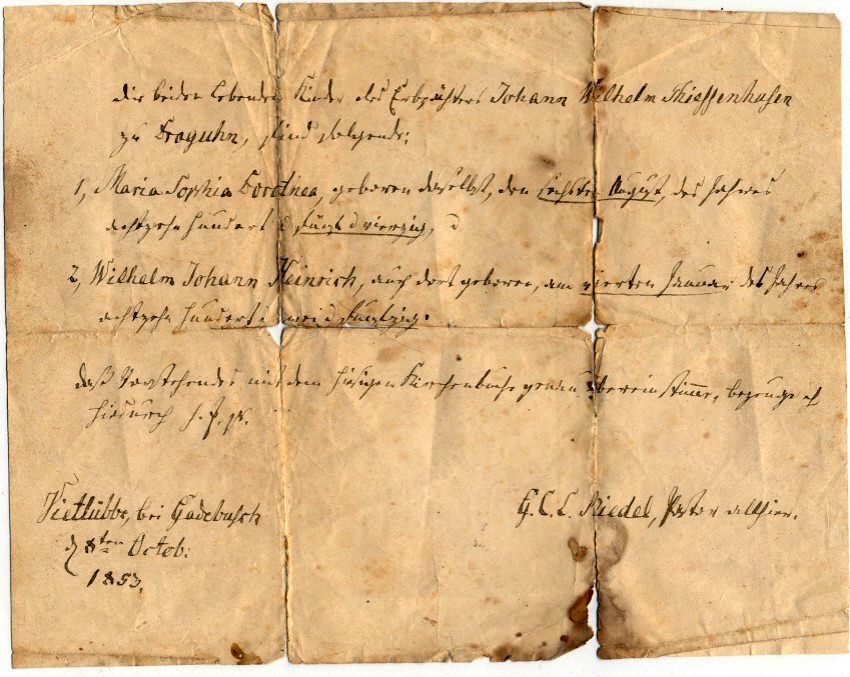 Die beiden lebenden Kinder des Erbpächters Johann Wilhelm Thiessenhusen
zu Draguhn, sind folgende:
1, Maria Sophia Dorothea, geboren daselbst, den sechsten August, des Jahres
achtzehn hundert d fünf d vierzig, d
2, Wilhelm Johann Heinrich, auch dort geboren, am vierten Januar des Jahres
achtzehn hundert d zwei d fünfzig.
Daß Vorstehendes mit dem hiesigen Kirchenbuche genau übereinstimme, bezeuge ich
hiedurch
Vietlübbe, bei Gadebusch
d 8ten Octob:
1853.
G. C. L. Riedel, Pastor allhier.